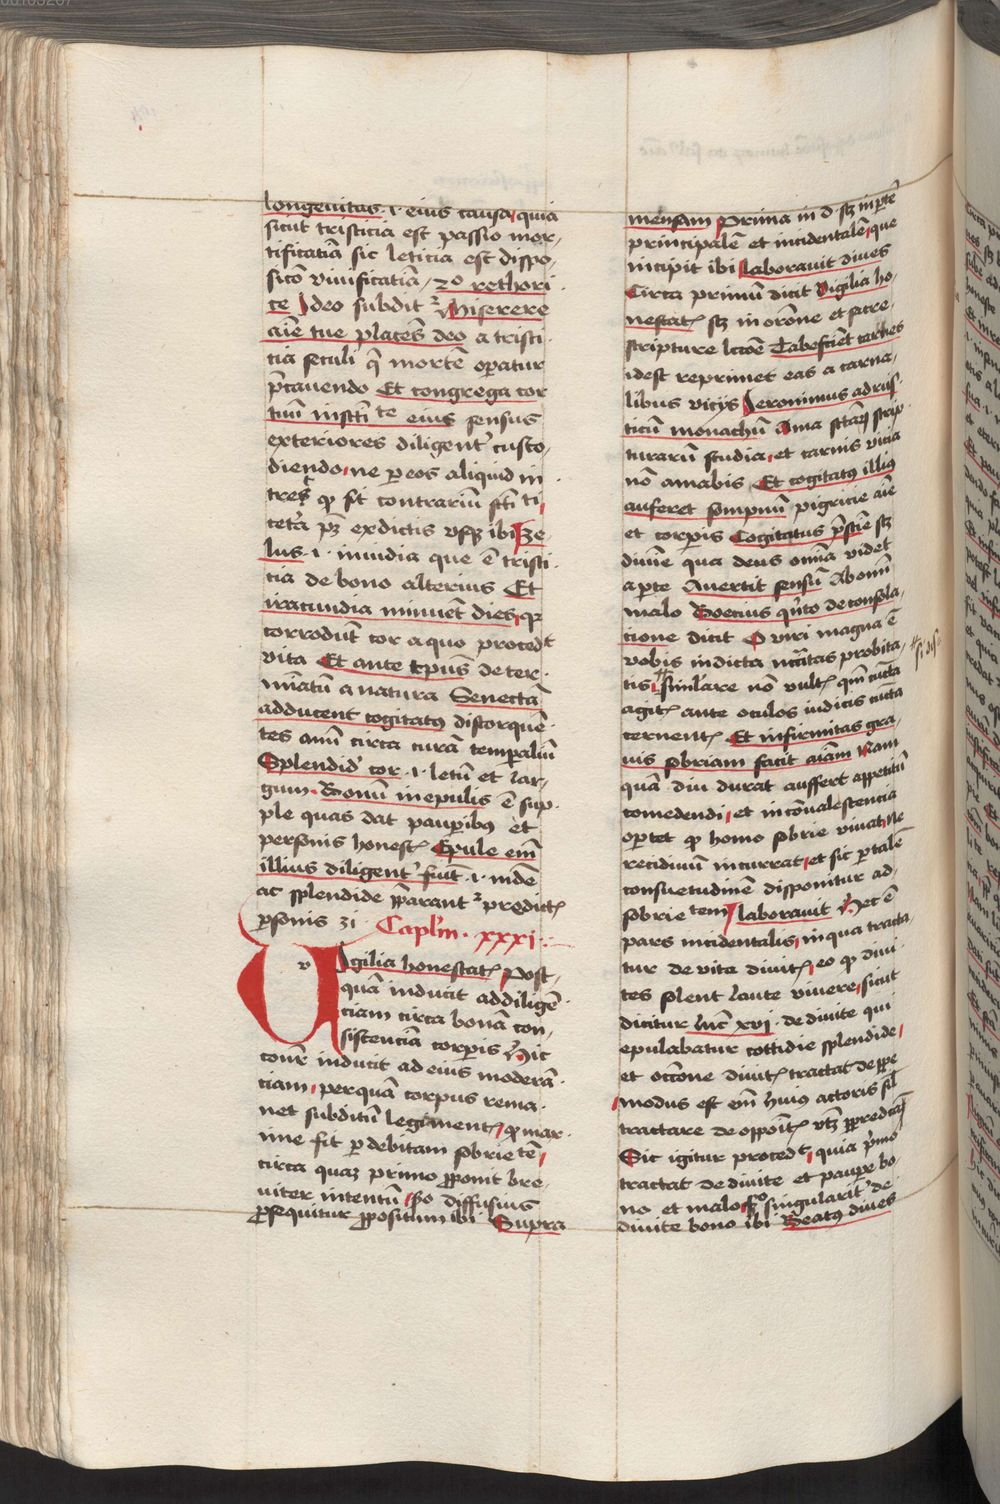 longeuitas · i · eius causa, quia
sicut tristicia est passio mor,
tificatiā sic leticia est dispo,
sicō viuificatiā, 2o rethori ·
ce Ideo subdit Miserere
aīe tue placēs deo a tristi ·
tia seculi q̄ mortē operatur
p̄cauendo Et congrega cor
tuū in sctītte eius sensus
exteriores diligent̉ custo,
diendo, ne p eos aliquid in ·
tret qp sit contrariū scti ti,
tetā pz ex dictis vsqz ibi Ze,
lus · i · inuidia que ē tristi ·
tia de bono alterius Et
iracundia minuēt dies, qz
corrodūt cor a quo procedt
vita Et ante tpus deter ·
minātū a natura Senectā
adducent cogitatus distorquē ·
tes aīm circa curā temporaliū
Splendid̉ cor · i · letū et lar,
gum · Bonum in epulis ē sup ·
ple quas dat paupibus et
personis honest Epule eīm
illius diligent̉ fiūt · i · mūde
ac splendide pparant predict
psonis zi · Caplm · xxxi ·
v Igilia honestat Post,
quā inducit ad diligē ·
ciam circa bonā con,
sistenciā corporis Hic
cour inducit ad eius moderā ·
ciam, per quā corpus rema ·
net subditū legi ment, qp mar ·
ime fit p debitam sobrietē,
circa quaz primo pponit bre ·
uiter intentū, 2o diffusius
psequitur ppositum ibi Supra
mensam Prima in d · sz in ptē
principalē et incidentalē, que
incipit ibi Laborauit diues
Circa primū dicit Vigilia ho,
nestat sz in orōne et sacre
scripture lccōe Tabefaciēt carnes
idest reprimet eas a carna,
libus vicijs Jeronimus ad rus
ticū monachū Ama sctāꝝ scrip
turarū studia, et carnis vicia
nō amabis Et cogitatus illius
auferet sompnū pigricie aīe
et corporis Cogitatus p̄scīe sz
diuīe qua deus omīa videt
a pte Auertit sensū A bonī
malo Boecius quīto de consola,
cione dicit O viri magna ē
vobis indicta nccītas probita,
tis, # Simlare nō vult qm cūcta
agit ante oculos iudicis cūcta
cernent Et infirmitas gra,
uis sobriam facit aīam Nam
quā diu durat auffert appetitū
comedendi, et in cōualescencia
oportet qp homo sobrie viuat, ne
recidiuū incurrat, et sic p talē
consuetudinē disponitur ad,
sobrietem, Laborauit Hec ē
pars incidentalis, in qua tracta,
tur de vita diuit, eo qp diui ·
tes solent laute viuere, sicut
dicitur luc̄ xvi · de diuite qui
epulabatur cottidie splendide,
et occōne diuit tractat de spe
modus est eīm huius actoris sil
tractare de opposit vtz p predictā
Sic igitur procedt, quia p̉mo
tractat de diuite et paupe bo,
no et malo, sz 2o singularit̉ de
diuite bono ibi Beatus diues
# si dis